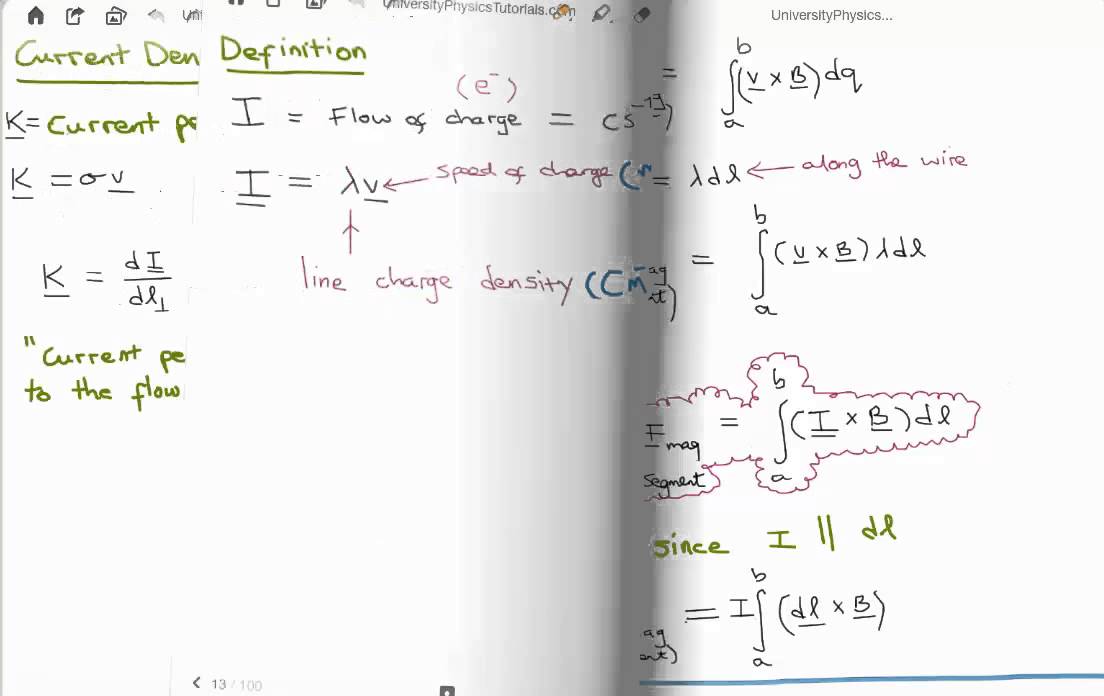 UniversityPhysicsTutorials.com
UniversityPhysics...
Current Den
K = Current pe
K = σ v
K = dI / dl⊥
"Current pe
to the flow
Definition
(e⁻)
I = Flow of charge = Cs⁻¹
I = λ v ← speed of charge (m
↑
line charge density (Cm⁻
< 13 / 100
= ∫ₐᵇ (v × B) dq
= λ dl ← along the wire
= ∫ₐᵇ (v × B) λ dl
F mag segment = ∫ₐᵇ (I × B) dl
since I || dl
= I ∫ₐᵇ (dl × B)